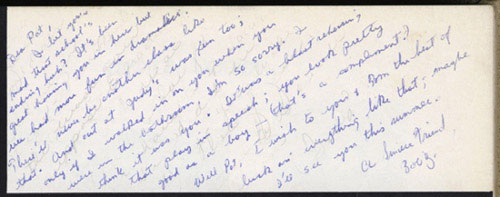 Dear Pat,
I bet you're
mad that school's
ending, huh? It's been
great having you in here but
we had more fun in dramatics.
There'll never be another class like
that. And out at Jody's was fun too;
only if I walked in on you when you
were in the bathroom I'm so sorry. I
think it was you. It was a blast rehearsing
that play in speech; you look pretty
good as a boy (that's a compliment)!
Well Pat, I wish to you & Tom the best of
luck in everything like that; maybe
I'll see you this summer.
A Sincere Friend,